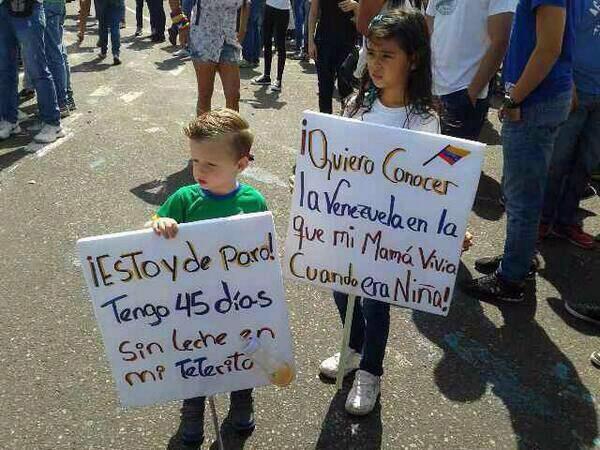 ¡EsToy de Paro!
Tengo 45 días
Sin Leche en
mi TeTeriTo
¡Quiero Conocer
la Venezuela en la
que mi Mamá Vivia
Cuando era Niña!